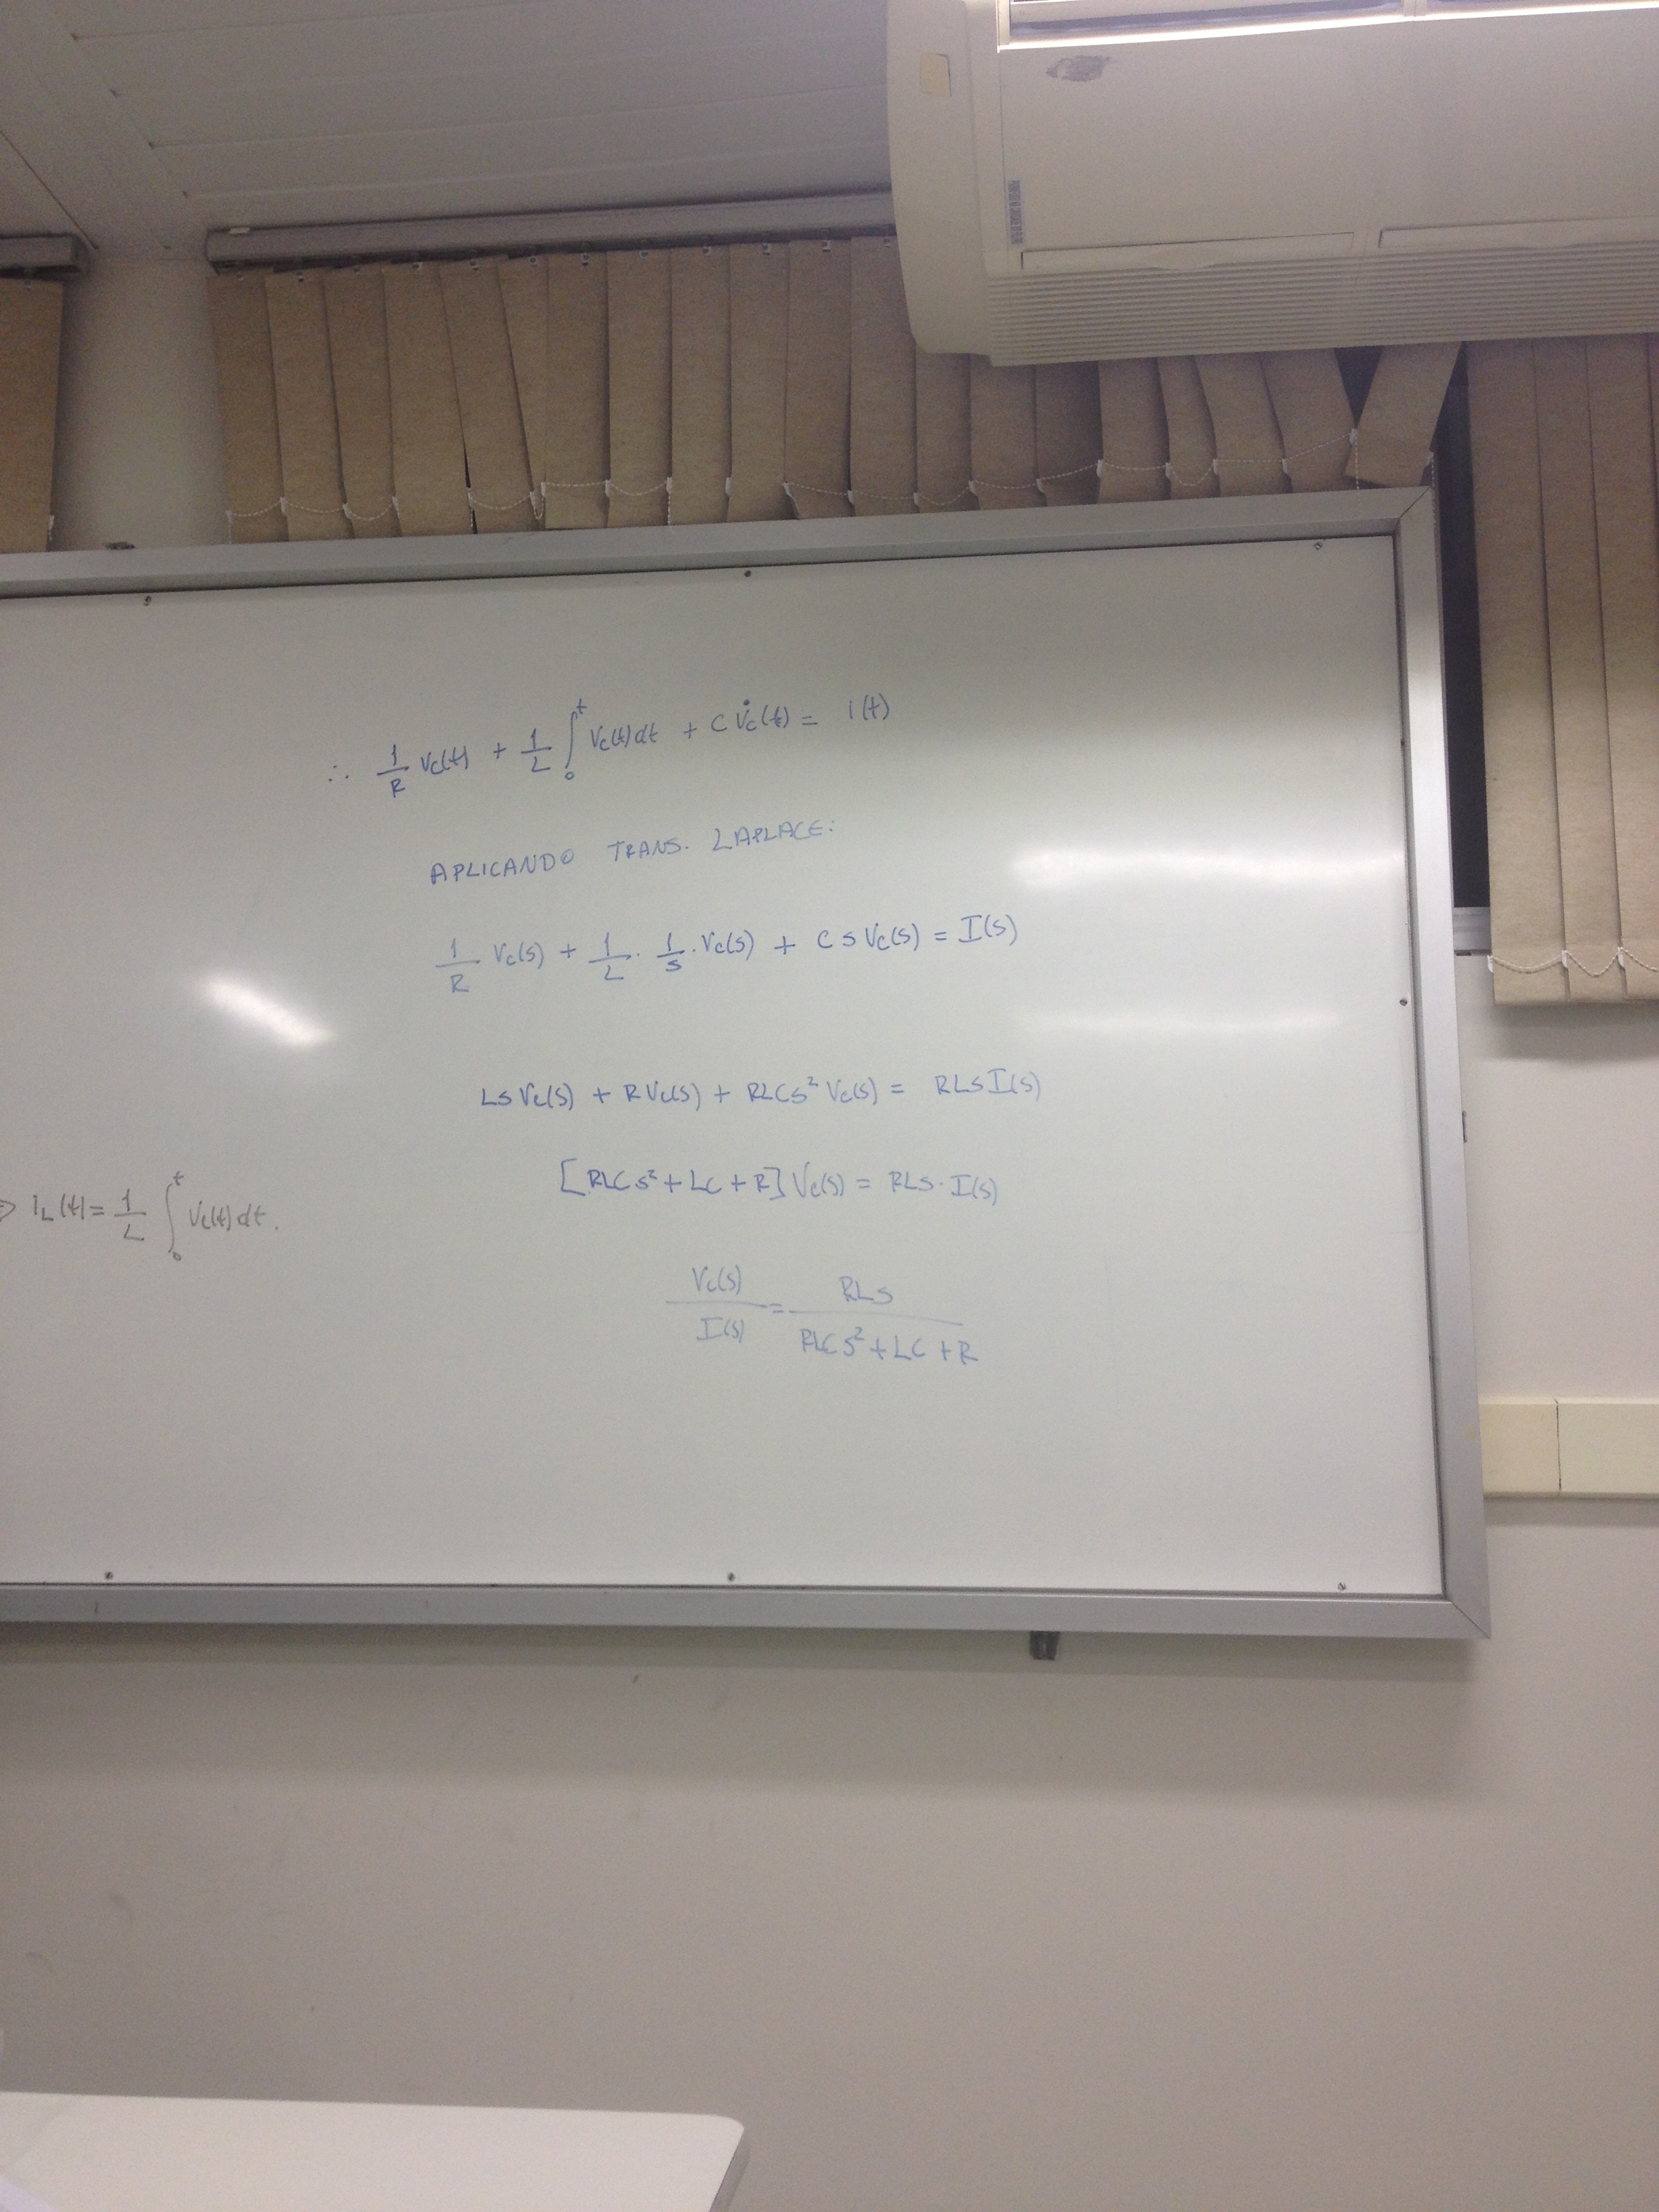 ∴ 1/R Vc(t) + 1/L ∫₀ᵗ Vc(t)dt + C V̇c(t) = i(t)
APLICANDO TRANS. LAPLACE:
1/R Vc(s) + 1/L · 1/s · Vc(s) + C s Vc(s) = I(s)
LS Vc(s) + R Vc(s) + RLCS² Vc(s) = RLS I(s)
[RLCS² + LC + R] Vc(s) = RLS · I(s)
⇒ iL(t) = 1/L ∫₀ᵗ Vc(t) dt.
Vc(s)/I(s) = RLS/(RLCS² + LC + R)